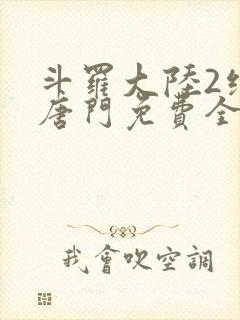 斗羅大陸2
唐門免費全
我會吹空調